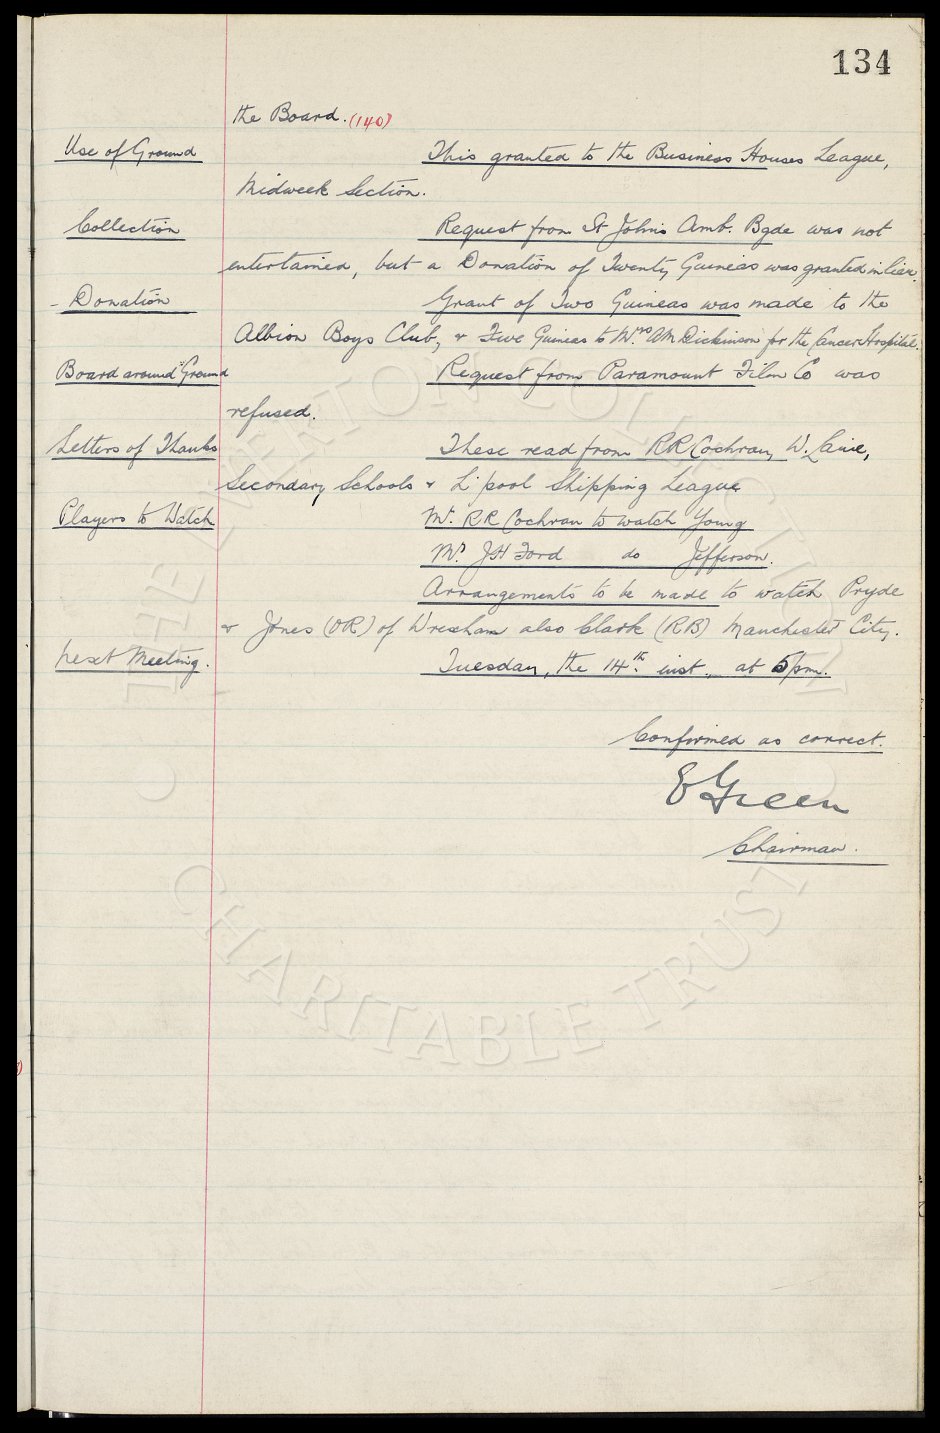 134
the Board. (140)
Use of Ground This granted to the Business Houses League,
Midweek Section.
Collection Request from St Johns Amb. Bgde was not
entertained, but a Donation of Twenty Guineas was granted in lieu.
- Donation Grant of Two Guineas was made to the
Albion Boys Club, & Five Guineas to Mrs AM Dickinson for the Cancer Hospital.
Board around Ground Request from Paramount Film Co was
refused.
Letters of Thanks These read from RR Cochran, W.
Secondary Schools & L'pool Shipping League
Players to Watch Mr. RR Cochran to watch Young
Mr. JH Ford do Jefferson.
Arrangements to be made to watch Pryde
& Jones (OR) of Wrexham also Clark (RB) Manchester City.
Next Meeting. Tuesday, the 14th. inst., at 5pm.
Confirmed as correct.
E Green
Chairman.
© THE EVERTON COLLECTION
CHARITABLE TRUST